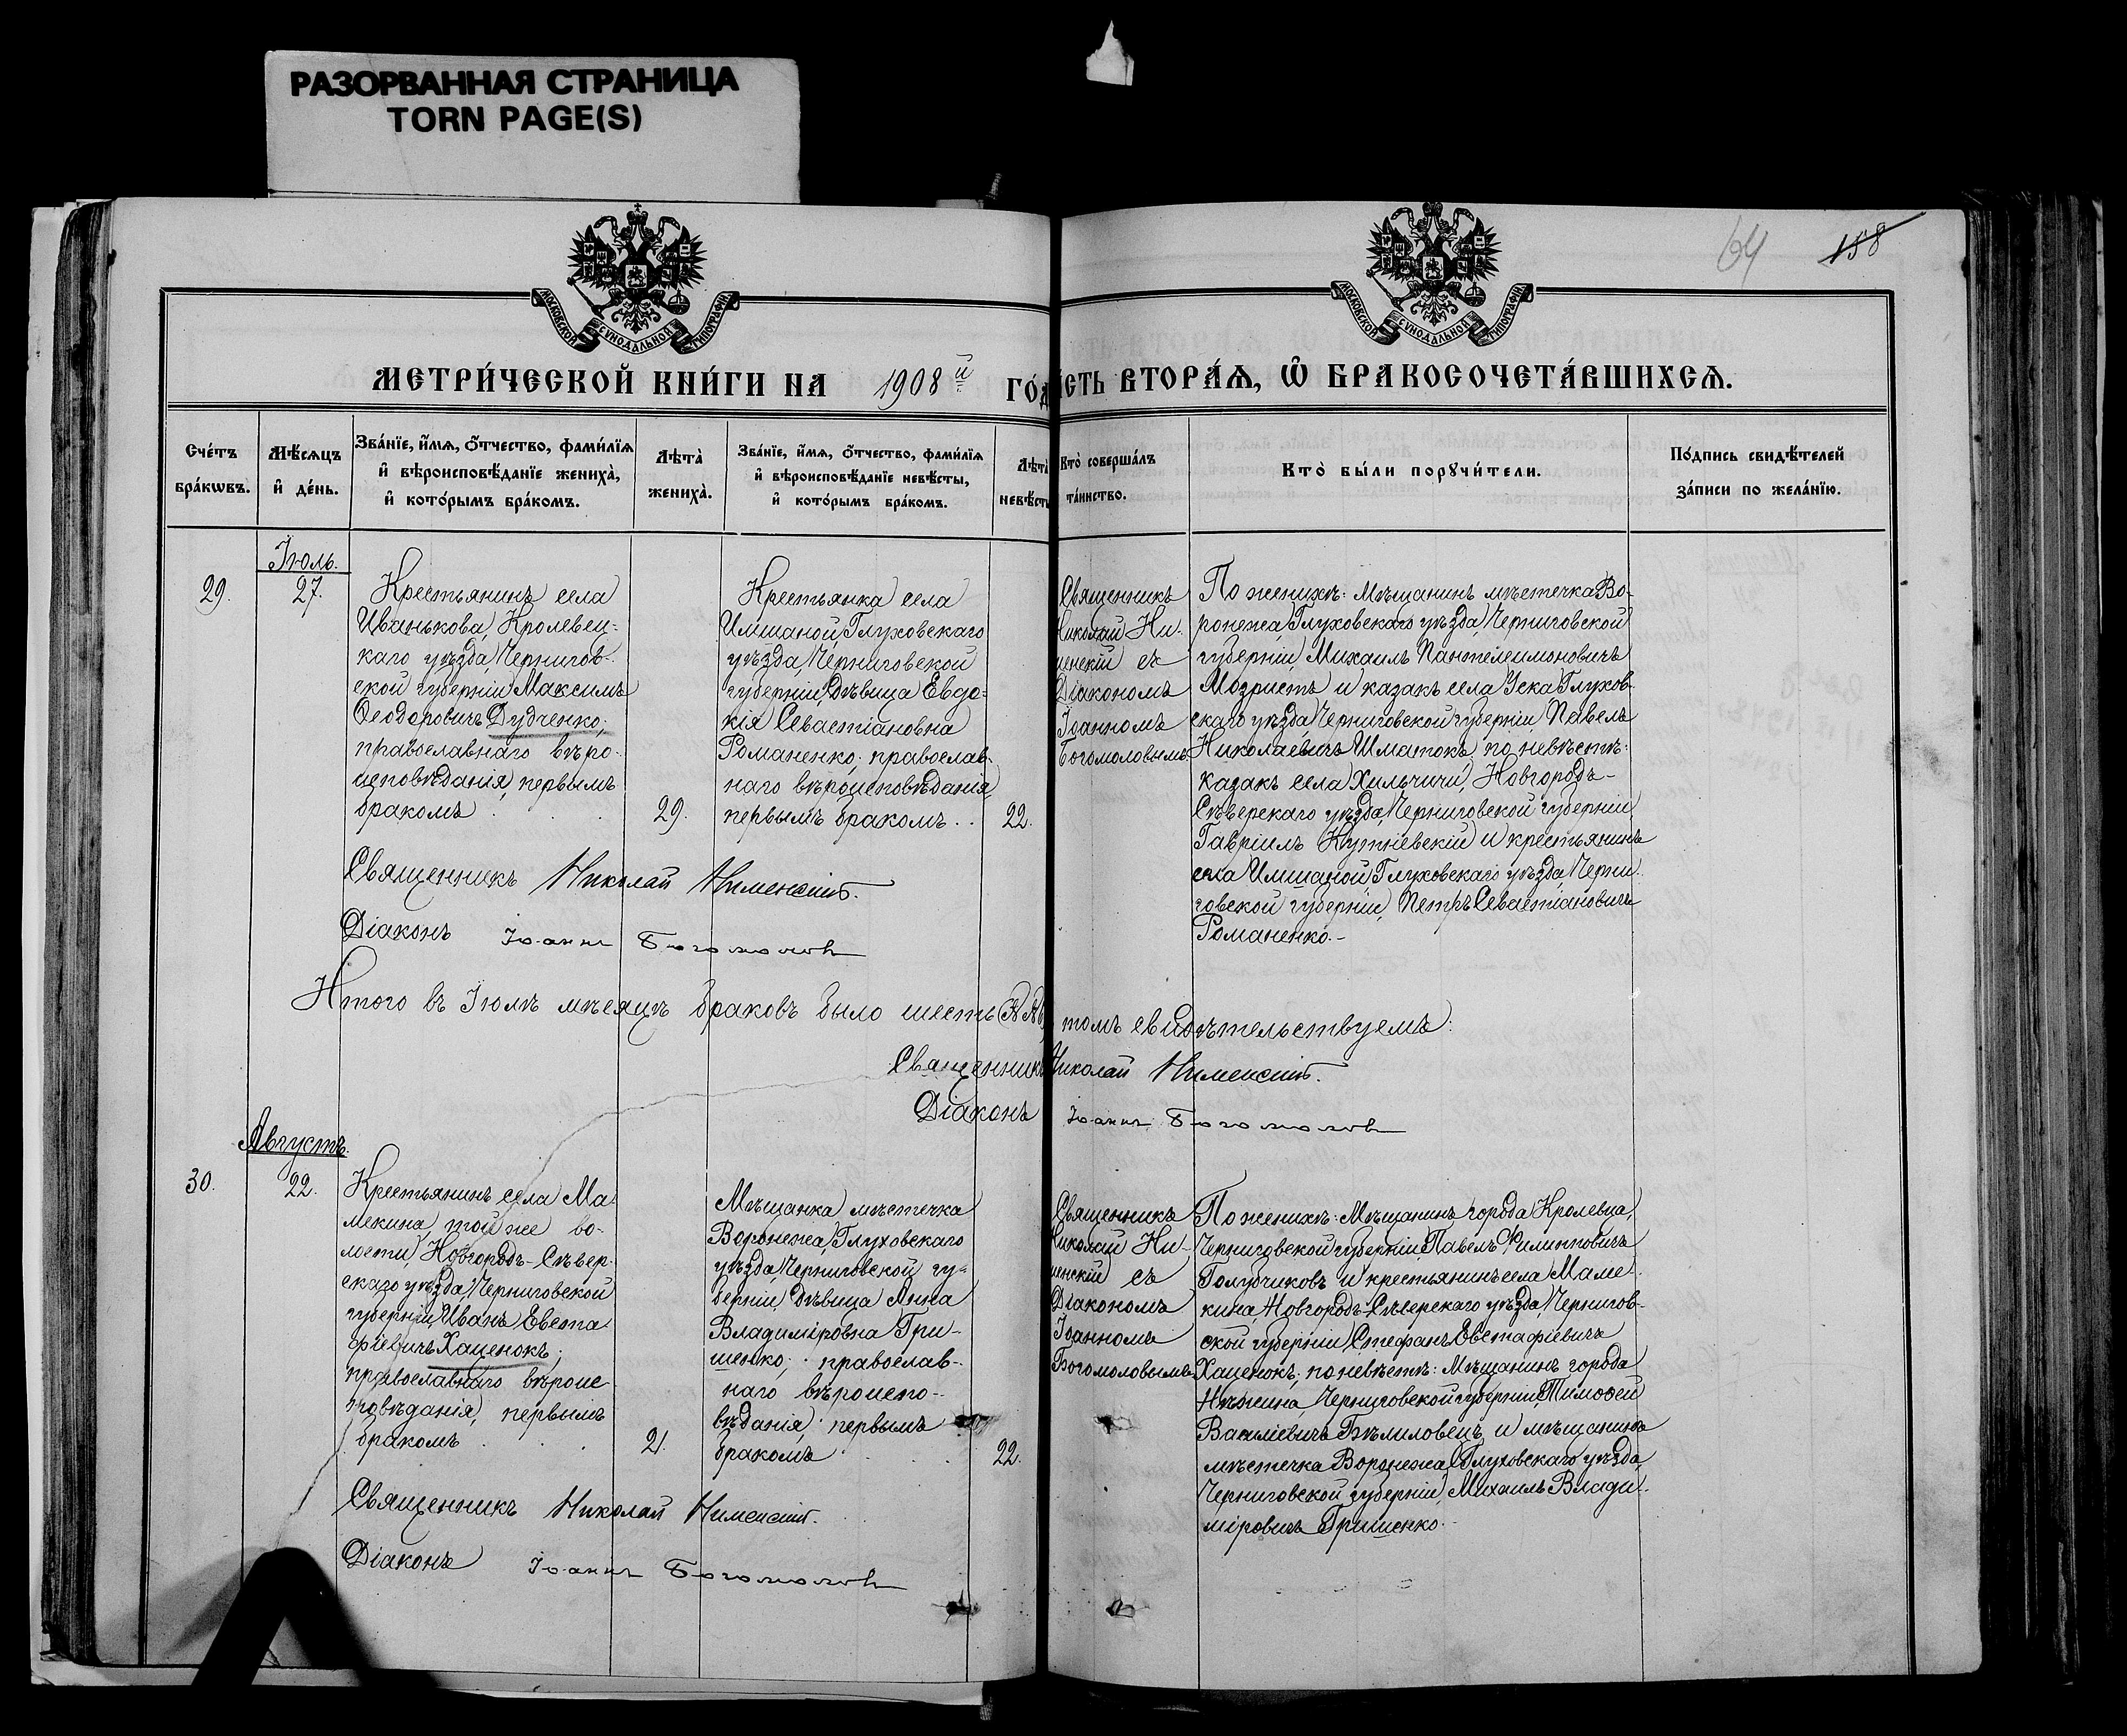 РАЗОРВАННАЯ СТРАНИЦА
TORN PAGE(S)
64
158
МОСКОВСКОЙ СѴНОДАЛЬНОЙ ТИПОГРАФІИ
МОСКОВСКОЙ СѴНОДАЛЬНОЙ ТИПОГРАФІИ
МЕТРИ́ЧЕСКОЙ КНИ́ГИ НА 1908й ГО́Д
СТЬ ВТОРА́Ѧ, Ѡ҆ БРАКОСОЧЕТА́ВШИХСѦ.
Сче́тъ
бра́кѡвъ.
Мѣ́сѧцъ
и҆ де́нь.
Зва́нїе, и҆́мѧ, о҆́тчество, фами́лїѧ
и҆ вѣроисповѣ́данїе жениха̀,
и҆ кото́рымъ бра́комъ.
Лѣта̀
жениха̀.
Зва́нїе, и҆́мѧ, о҆́тчество, фами́лїѧ
и҆ вѣроисповѣ́данїе невѣ́сты,
и҆ кото́рымъ бра́комъ.
Лѣта̀
невѣ́сты
Кто̀ соверша́лъ
та́инство.
Кто̀ бы́ли порꙋчи́тели.
По́дпись свидѣ́телей
за́писи по жела́нїю.
Іюль.
29.
27.
Крестьянинъ села
Иванькова, Кролевец-
каго уѣзда, Чернигов-
ской губерніи Максимъ
Ѳеодоровичъ Дудченко;
православнаго вѣро-
исповѣданія, первымъ
бракомъ . . .
29.
Крестьянка села
Имшаной, Глуховскаго
уѣзда, Черниговской
губерніи, дѣвица Евдо-
кія Севастіановна
Романенко; православ-
наго вѣроисповѣданія,
первымъ бракомъ . .
22.
Священникъ
Николай Ни-
менскій съ
Діакономъ
Іоанномъ
Богомоловымъ.
По женихѣ: мѣщанинъ мѣстечка Во-
ронежа, Глуховскаго уѣзда, Черниговской
губерніи, Михаилъ Пантелеимоновичъ
и казакъ села Эска Глухов-
скаго уѣзда, Черниговской губерніи, Павелъ
Николаевичъ Шматокъ; по невѣстѣ:
казакъ села Хильчичи, Новгородъ-
Сѣверскаго уѣзда, Черниговской губерніи
Гавріилъ и крестьянинъ
села Имшаной Глуховскаго уѣзда, Черни-
говской губерніи, Петръ Севастіановичъ
Романенко.-
Священникъ Николай Нименскій.
Діаконъ Іоаннъ Богомоловъ
Итого въ Іюлѣ мѣсяцѣ браковъ было шесть
томъ свидѣтельствуемъ:
Священникъ Николай Нименскій.
Діаконъ Іоаннъ Богомоловъ
Августъ.
30.
22.
Крестьянинъ села Ма-
мекина той же во-
лости, Новгородъ-Сѣвер-
скаго уѣзда, Черниговской
губерніи, Иванъ Евста-
фіевичъ Хаценокъ;
православнаго вѣроис-
повѣданія, первымъ
бракомъ . . .
21.
Мѣщанка мѣстечка
Воронежа, Глуховскаго
уѣзда, Черниговской гу-
берніи, дѣвица Анна
Владиміровна Гри-
шенко; православ-
наго вѣроиспо-
вѣданія, первымъ
бракомъ . . .
22.
Священникъ
Николай Ни-
менскій съ
Діакономъ
Іоанномъ
Богомоловымъ
По женихѣ: Мѣщанинъ города Кролевца,
Черниговской губерніи, Павелъ Филипповичъ
Голубчиковъ и крестьянинъ села Маме-
кина, Новгородъ-Сѣверскаго уѣзда, Чернигов-
ской губерніи, Стефанъ Евстафіевичъ
Хаценокъ; по невѣстѣ: Мѣщанинъ города
Нѣжина, Черниговской губерніи, Тимоѳей
Василіевичъ Бѣлиловецъ и мѣщанинъ
мѣстечка Воронежа, Глуховскаго уѣзда,
Черниговской губерніи, Михаилъ Влади-
міровичъ Гришенко.-
Священникъ Николай Нименскій.
Діаконъ Іоаннъ Богомоловъ